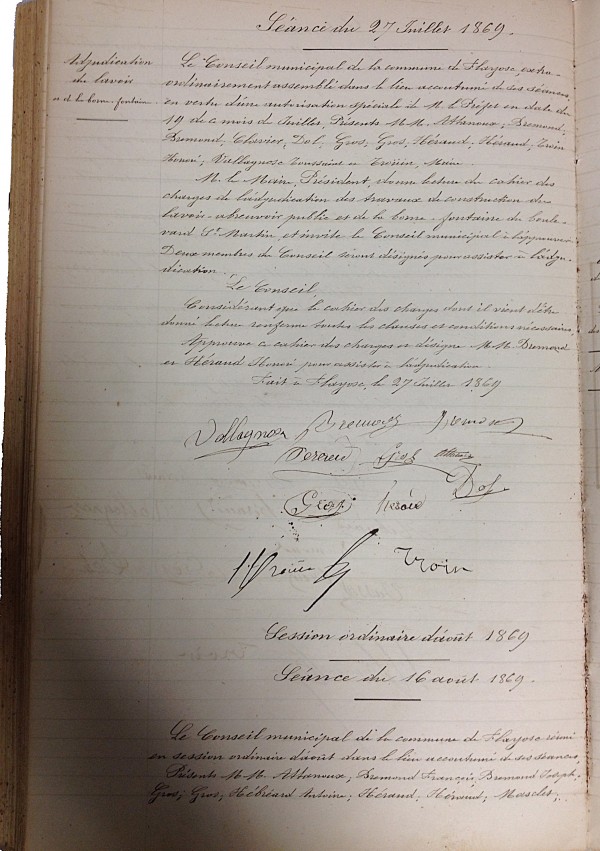 Séance du 27 Juillet 1869.
Adjudication
du lavoir
et de la borne-fontaine.
Le Conseil municipal de la commune de Flayosc, extra-
ordinairement assemblé dans le lieu accoutumé de ses séances,
en vertu d'une autorisation spéciale de M. le Préfet en date du
19 de ce mois de Juillet, Présents M.M. Attanoux; Bremond;
Bremond; Clavier; Dol; Gros; Gros; Héraud; Héraud; Troin
Honoré; Vallagnosc Toussaint et Troin, Maire
M. le Maire, Président, donne lecture du cahier des
charges de l'adjudication des travaux de construction du
lavoir-abreuvoir public et de la borne-fontaine du boule-
vard St Martin, et invite le Conseil municipal à l'approuver.
Deux membres du Conseil seront désignés pour assister à l'adju-
dication.
Le Conseil,
Considérant que le cahier des charges dont il vient d'être
donné lecture renferme toutes les clauses et conditions nécessaires,
Approuve ce cahier des charges et désigne M.M. Bremond
et Héraud Honoré pour assister à l'adjudication.
Fait à Flayosc, le 27 Juillet 1869
Vallagnosc Bremond Bremond
Gros Attanoux
Dol
Gros Heraud
Troin
Session ordinaire d'août 1869
Séance du 16 août 1869.
Le Conseil municipal de la commune de Flayosc réuni
en session ordinaire d'août dans le lieu accoutumé de ses séances,
Présents M.M. Attanoux; Bremond François; Bremond Joseph;
Gros; Gros; Hébréard Antoine; Héraud; Héraud; Mascles;